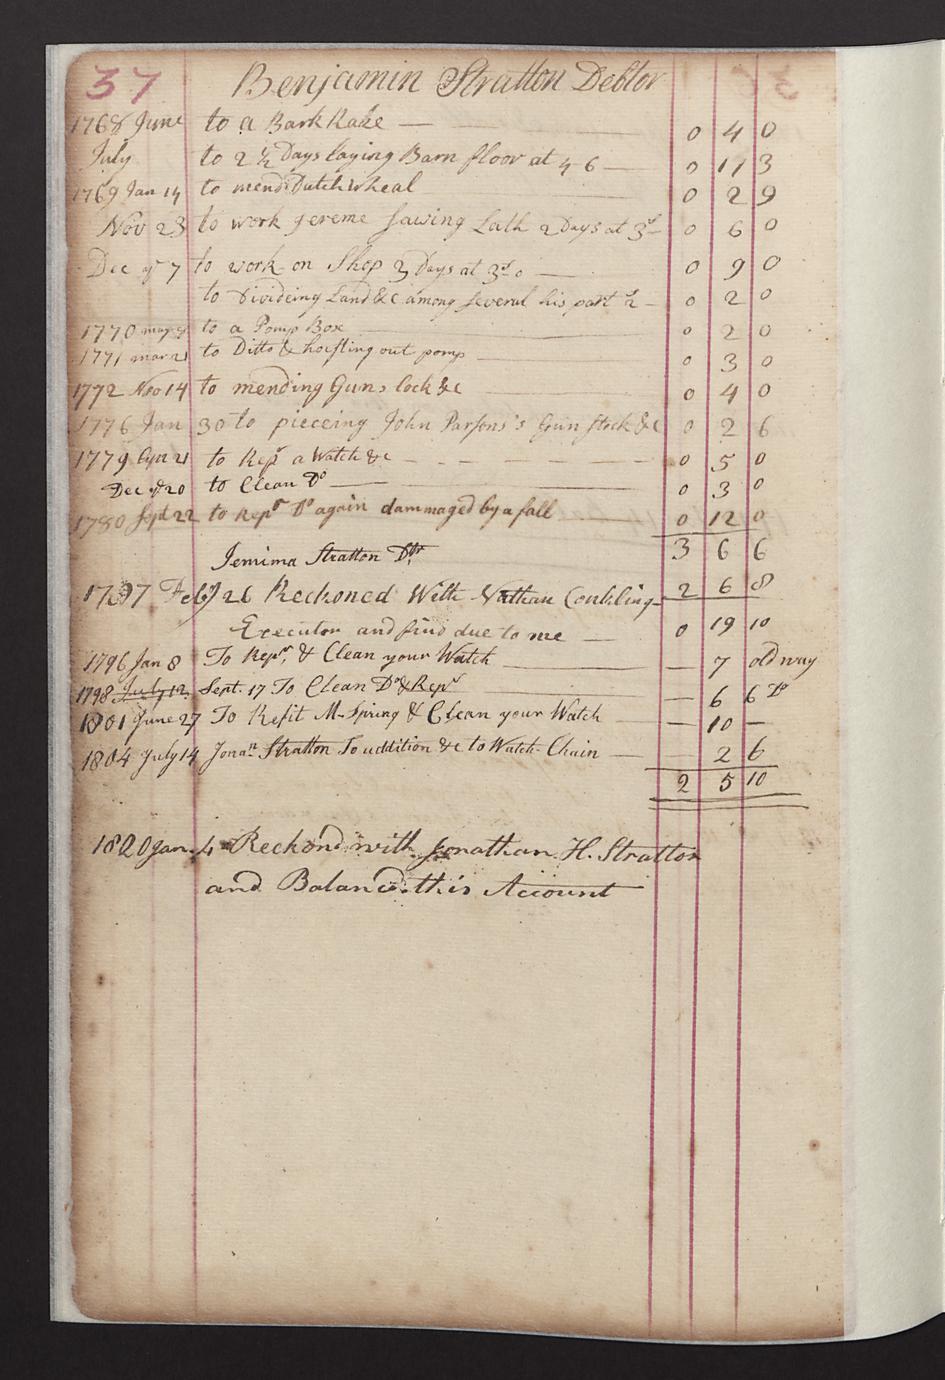 37 Benjamin Stratton Debtor
1768 June to a Bark Rake — 0 4 0
July to 2 ½ Days laying Barn floor at 4 6 — 0 11 3
1769 Jan 14 to mend Dutch wheal 0 2 9
Nov 23 to work Jereme Sawing Lath 2 Days at 3s — 0 6 0
Dec ye 7 to work on Shop 3 Days at 3s 0 — 0 9 0
to Divideing Land &c among several his part — 0 2 0
1770 may to a Pomp Box 0 2 0
1771 mar 21 to Ditto & hoisting out pomp 0 3 0
1772 Nov 14 to mending Guns lock &c 0 4 0
1776 Jan 30 to pieceing John Parsons's Gun Stock &c 0 2 6
1779 Apr 21 to Repr a Watch &c — 0 5 0
Dec ye 20 to Clean Do — 0 3 0
1780 Sept 22 to Repr Do again dammaged by a fall 0 12 0
3 6 6
Jemima Stratton Dtr
1787 Feby 26 Reckoned With Nathan Conkling 2 6 8
Executor and find due to me — 0 19 10
1796 Jan 8 To Repr, & Clean your Watch — 7 old way
1798 July 12 Sept. 17 To Clean Do & Repr — 6 6 Do
1801 June 27 To Refit M-Spring & Clean your Watch — 10 —
1804 July 14 Jonan Stratton To addition &c to Watch Chain — 2 6
2 5 10
1820 Jan. 4 Reckond with Jonathan H. Stratton
and Balancd this Account